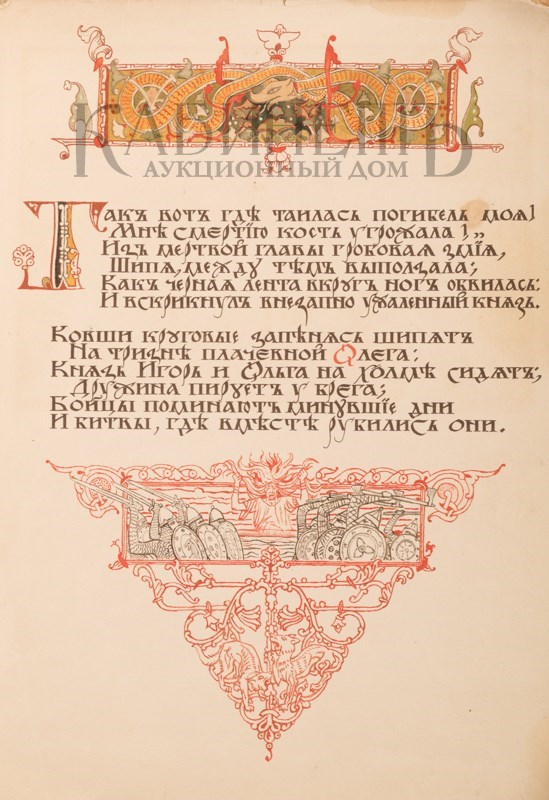 КАБИНЕТЪ
АУКЦИОННЫЙ ДОМ
Такъ вотъ гдѣ таилась погибель моя!
Мнѣ смертiю кость угрожала!„
Изъ мертвой главы гробовая змiя,
Шипя, между тѣмъ выползала;
Какъ черная лента вкругъ ногъ обвилась:
И вскрикнулъ внезапно ужаленный князь.
Ковши круговые запѣнясь шипятъ
На тризнѣ плачевной Олега;
Князь Игорь и Ольга на холмѣ сидятъ;
Дружина пируетъ у брега;
Бойцы поминаютъ минувшiе дни
И битвы, гдѣ вмѣстѣ рубились они.